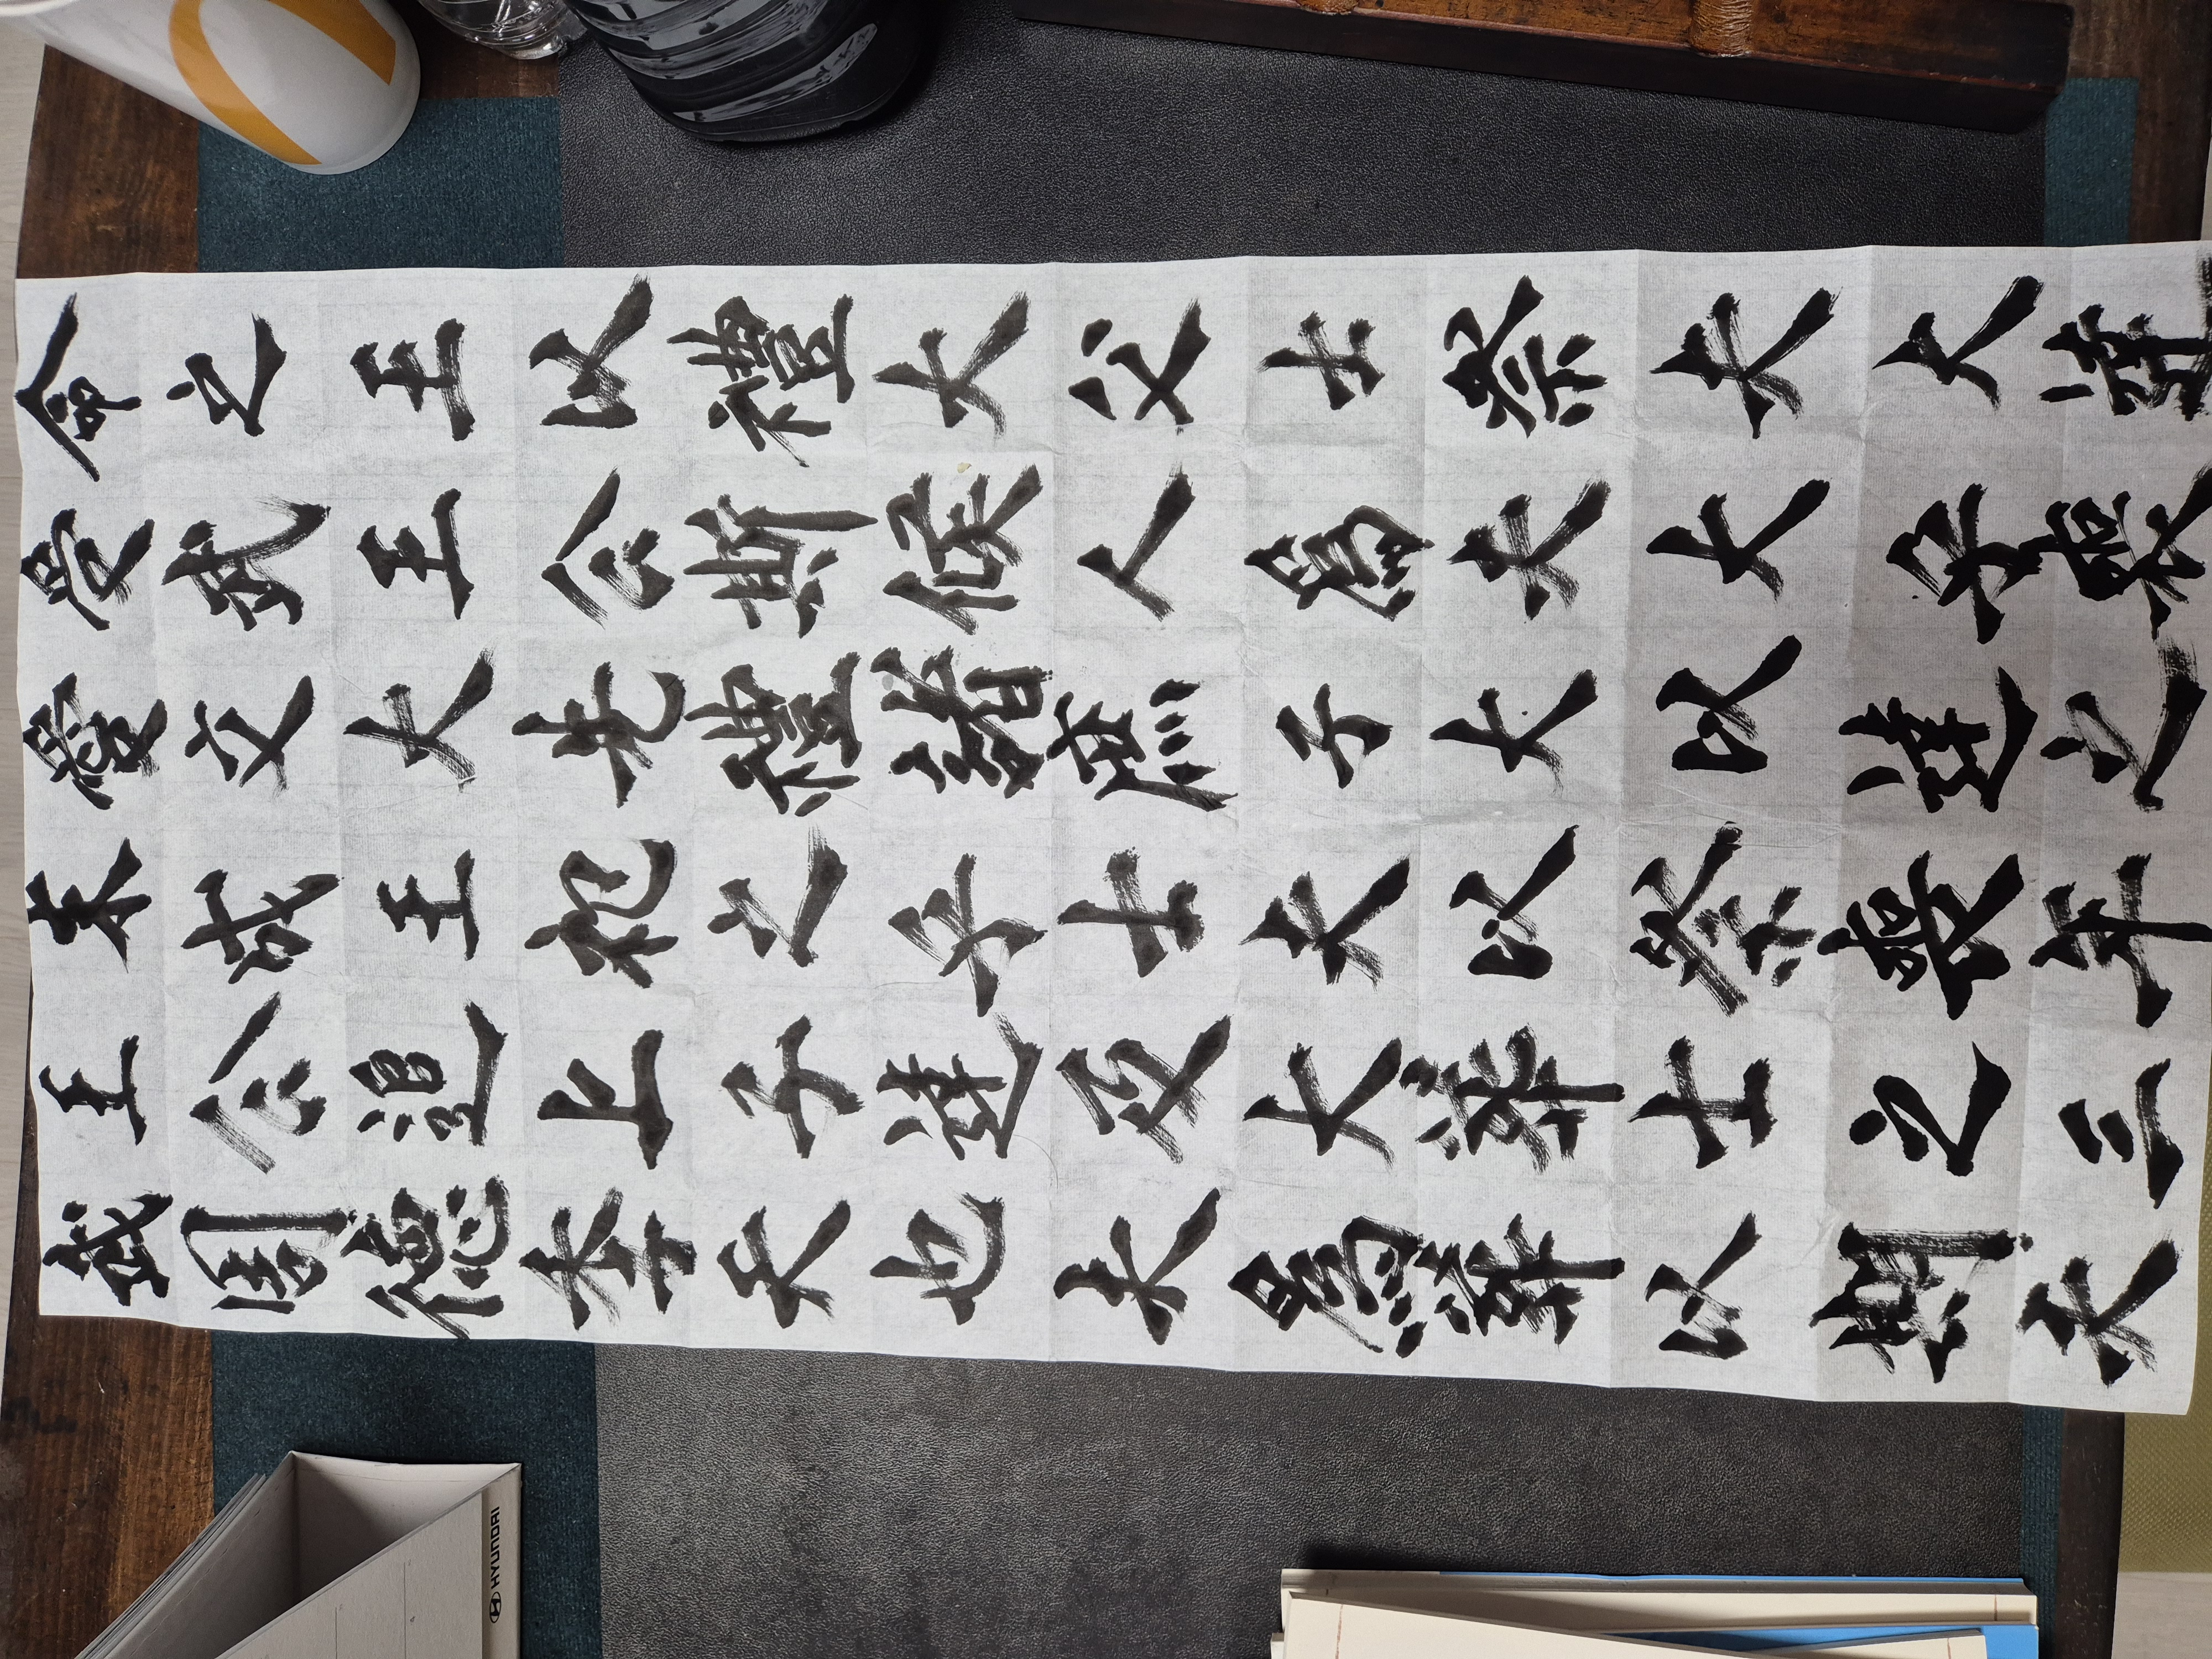 武王末愛受命
周公成文武之
德追王大王王
季上祀先公以
天子之禮斯禮
也達乎諸侯大
夫及士庶人父
爲大夫子爲士
葬葬以大夫祭
以士祭以大夫
期之喪達乎大
夫三年之喪達
HYUNDAI